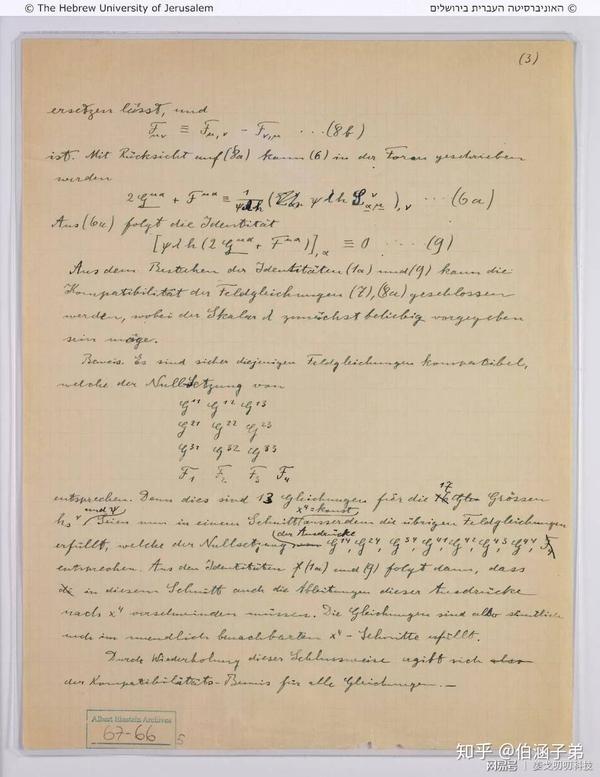 © The Hebrew University of Jerusalem
© האוניברסיטה העברית בירושלים
(3)
ersetzen lässt, und
F_μν ≡ F_μ,ν - F_ν,μ ... (8b)
ist. Mit Rücksicht auf (8a) kann (6) in der Form geschrieben
werden
2 G^μα + F^μα ≡ ... (6a)
Aus (6a) folgt die Identität
[ψ λ h (2 G^μα + F^μα)],α ≡ 0 ... (9)
Aus dem Bestehen der Identitäten (1a) und (9) kann die
Kompatibilität der Feldgleichungen (7), (8a) geschlossen
werden, wobei der Skalar λ zunächst beliebig vorgegeben
sein möge.
Beweis. Es sind sicher diejenigen Feldgleichungen kompatibel,
welche der Nullsetzung von
G^11 G^12 G^13
G^21 G^22 G^23
G^31 G^32 G^33
F_1 F_2 F_3 F_4
entsprechen. Denn dies sind 13 Gleichungen für die 17 Grössen
h_s^ν und ψ. Seien nun in einem Schnitt x^4 = konst ausserdem die übrigen Feldgleichungen
erfüllt, welche der Nullsetzung der Ausdrücke G^14, G^24, G^34, G^41, G^42, G^43, G^44
entsprechen. Aus den Identitäten (1a) und (9) folgt dann, dass
in diesem Schnitt auch die Ableitungen dieser Ausdrücke
nach x^4 verschwinden müssen. Die Gleichungen sind also sämtlich
auch im unendlich benachbarten x^4-Schnitte erfüllt.
Durch Wiederholung dieser Schlussweise ergibt sich
der Kompatibilitäts-Beweis für alle Gleichungen.—
Albert Einstein Archives
67-66
5
知乎 @伯涵子弟
网易号